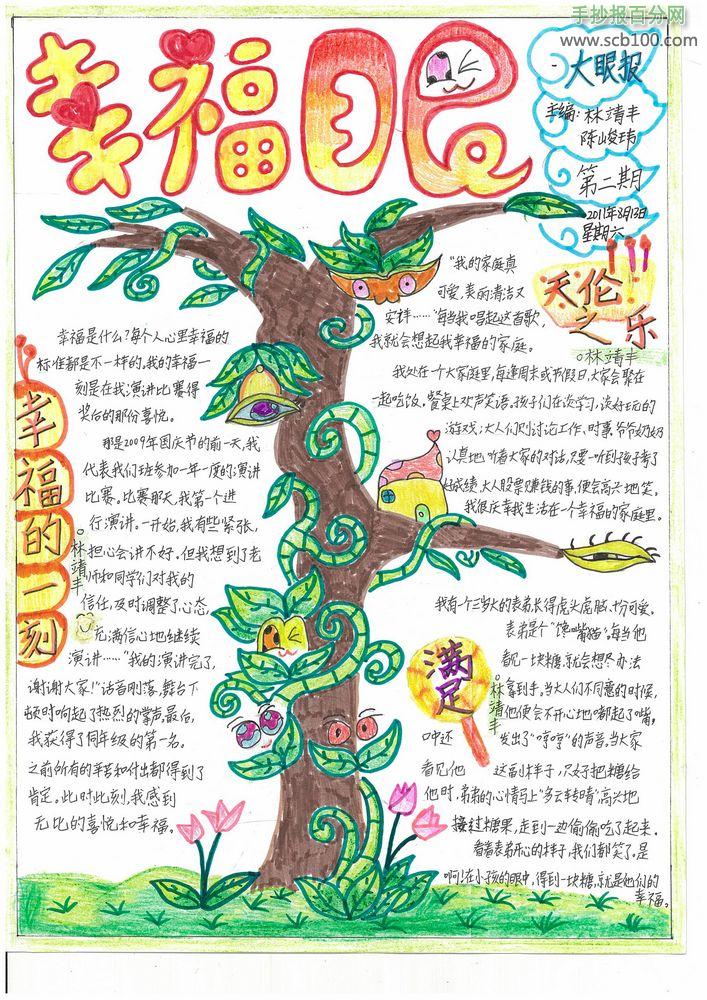 手抄报百分网
www.scb100.com
幸福眼
大眼报
手编:林靖丰
陈山俊玮
第二期
2011年3月13日
星期六
天伦之乐
林靖丰
"我的家庭真
可爱,美丽清洁又
安详……"每当我唱起这首歌,
我就会想起我幸福的家庭。
我处在一个大家庭里,每逢周末或节假日,大家会聚在
一起吃饭,餐桌上欢声笑语。孩子们在谈学习,谈好玩的
游戏;大人们则讨论工作、时事,爷爷奶奶
认真地听着大家的对话,只要一听到孩子考了
好成绩,大人股票赚钱的事,便会高兴地笑。
我很庆幸我生活在一个幸福的家庭里。
幸福的一刻
林靖丰
幸福是什么?每个人心里幸福的
标准都是不一样的。我的幸福一
刻是在我演讲比赛得
奖后的那份喜悦。
那是2009年国庆节的前一天,我
代表我们班参加一年一度的演讲
比赛。比赛那天,我第一个进
行演讲。一开始,我有些紧张,
把心会讲不好。但我想到了老
师和同学们对我的
信任,及时调整了心态,
充满信心地继续
演讲……"我的演讲完了,
谢谢大家!"话音刚落,舞台下
顿时响起了热烈的掌声。最后,
我获得了同年级的第一名。
之前所有的辛苦和付出都得到了
肯定。此时此刻,我感到
无比的喜悦和幸福。
满足
林靖丰
我有一个三岁大的表弟,长得虎头虎脑,十分可爱。
表弟是个"馋嘴猫",每当他
看见一块糖,就会想尽办法
拿到手。当大人们不同意的时候,
他便会不开心地嘟起了嘴,
口中还发出了"哼哼"的声音。当大家
看见他这副样子,只好把糖给
他时,弟弟的心情马上"多云转晴",高兴地
接过糖果,走到一边偷偷吃了起来。
看着表弟开心的样子,我们都笑了。是
啊!在小孩的眼中,得到一块糖,就是他们的
幸福。